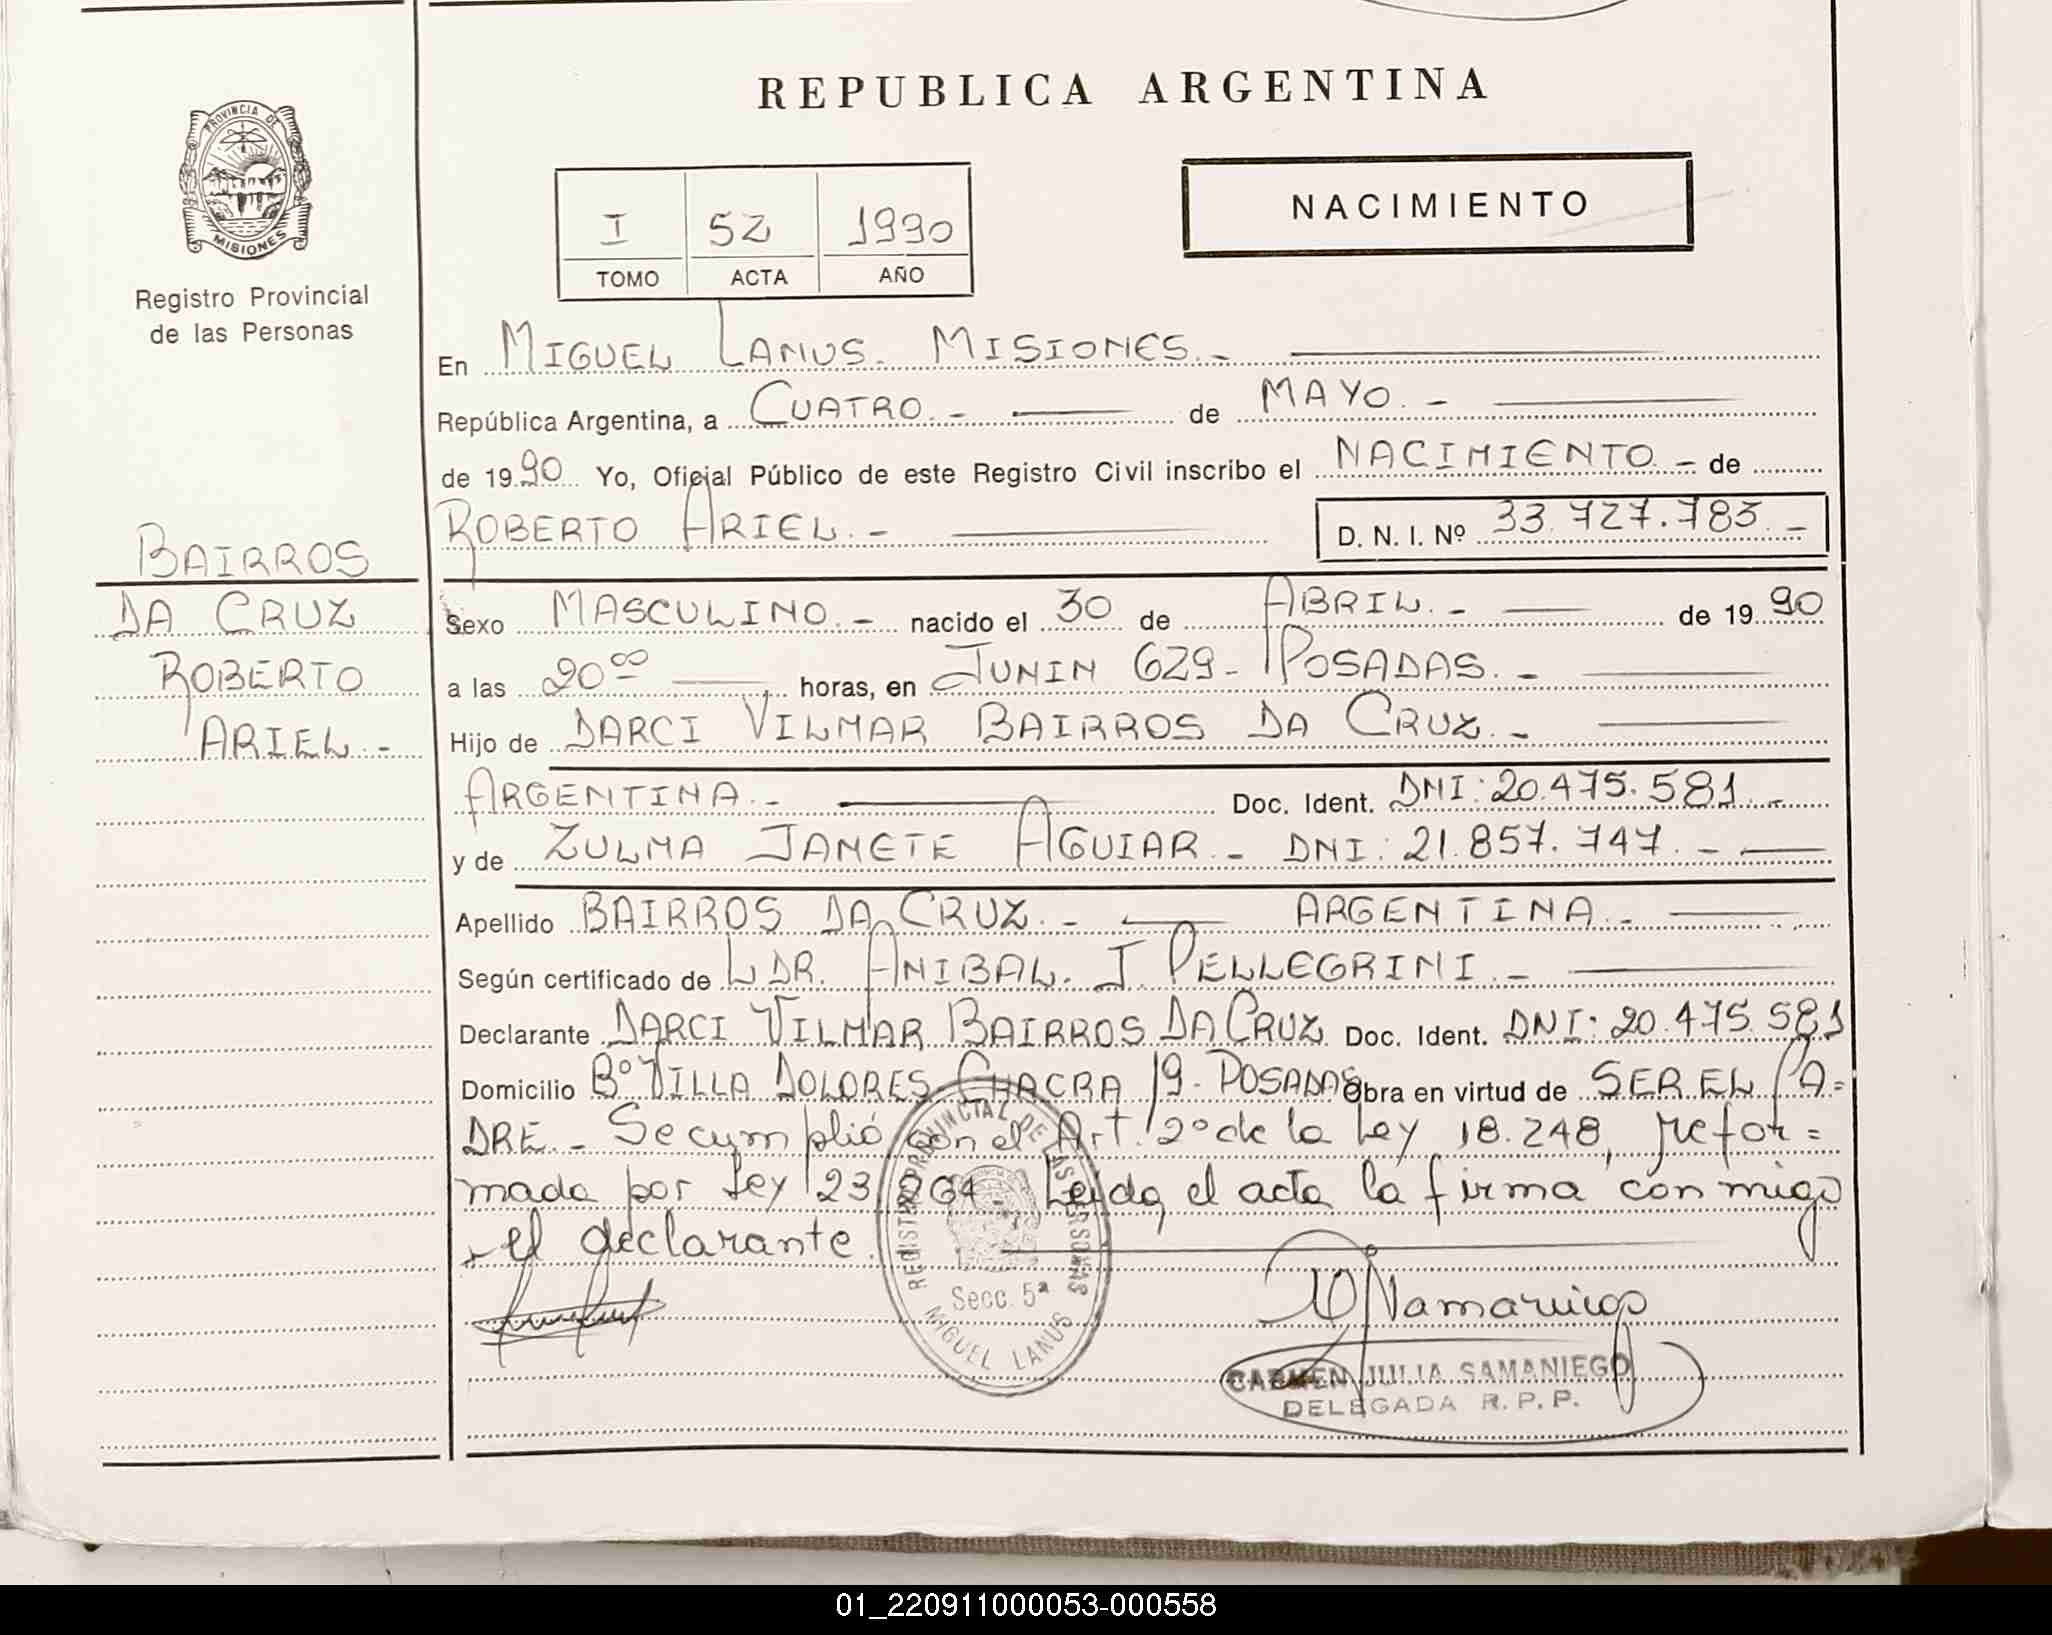 REPUBLICA ARGENTINA
PROVINCIA DE
MISIONES
Registro Provincial
de las Personas
NACIMIENTO
I 52 1990
TOMO ACTA AÑO
En MIGUEL LANUS. MISIONES.-
República Argentina, a CUATRO.- de MAYO.-
de 1990 Yo, Oficial Público de este Registro Civil inscribo el NACIMIENTO - de
ROBERTO ARIEL.- D. N. I. Nº 33.727.783.-
BAIRROS
DA CRUZ
ROBERTO
ARIEL.-
Sexo MASCULINO.- nacido el 30 de ABRIL.- de 1990
a las 20⁰⁰ horas, en JUNIN 629- POSADAS.-
Hijo de DARCI VILMAR BAIRROS DA CRUZ.-
ARGENTINA.- Doc. Ident. DNI: 20.475.581.-
y de ZULMA JANETE AGUIAR.- DNI: 21.857.747.-
Apellido BAIRROS DA CRUZ.- ARGENTINA.-
Según certificado de L DR. ANIBAL. J PELLEGRINI.-
Declarante DARCI VILMAR BAIRROS DA CRUZ Doc. Ident. DNI: 20.475.581
Domicilio Bº VILLA DOLORES- CHACRA 19- POSADAS Obra en virtud de SER EL PA=
DRE.- Se cumplió con el Art. 2º de la Ley 18.248, refor=
mada por Ley 23.264. Leida el acta la firma conmigo
el declarante.
REGISTRO PROVINCIAL DE LAS PERSONAS
Secc. 5ª
MIGUEL LANUS
CARMEN JULIA SAMANIEGO
DELEGADA R. P. P.
01_220911000053-000558